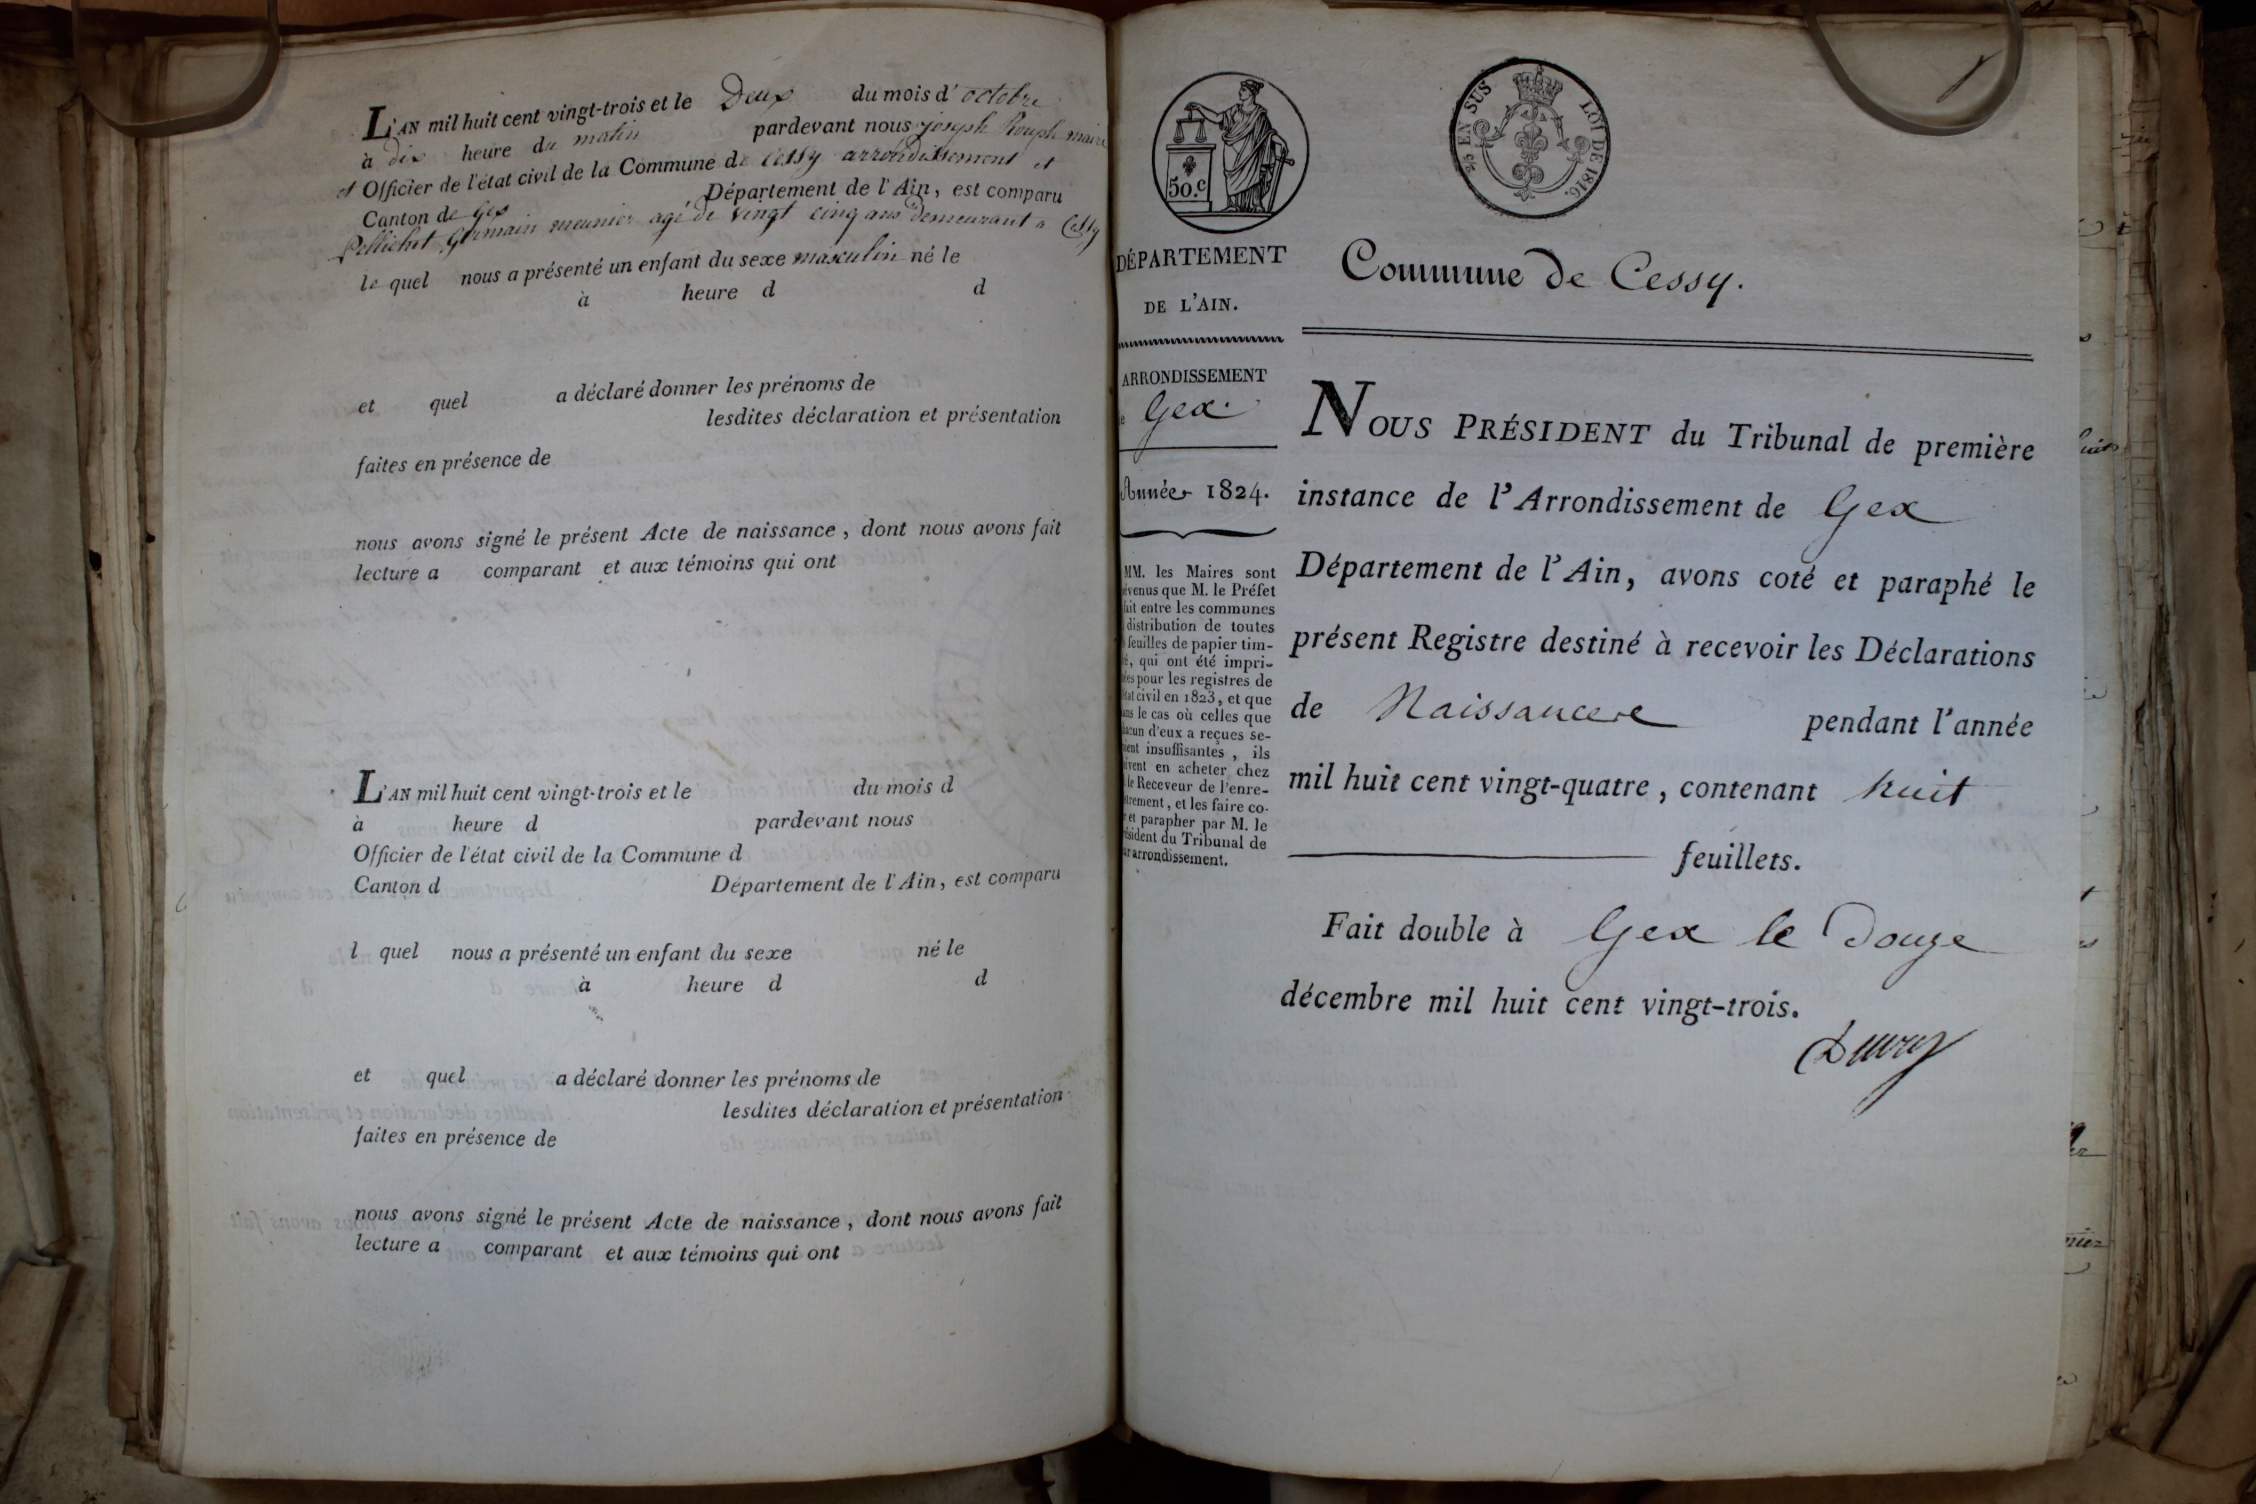 L'AN mil huit cent vingt-trois et le Deux du mois d'octobre
à dix heure du matin pardevant nous joseph Rouph maire
et Officier de l'état civil de la Commune de Cessy arrondissement et
Canton de Gex Département de l'Ain, est comparu
Pellichet Germain meunier agé de vingt cinq ans demeurant a Cessy
le quel nous a présenté un enfant du sexe masculin né le
à heure d d
et quel a déclaré donner les prénoms de
lesdites déclaration et présentation
faites en présence de
nous avons signé le présent Acte de naissance, dont nous avons fait
lecture a comparant et aux témoins qui ont
L'AN mil huit cent vingt-trois et le du mois d
à heure d pardevant nous
Officier de l'état civil de la Commune d
Canton d Département de l'Ain, est comparu
l quel nous a présenté un enfant du sexe né le
à heure d d
et quel a déclaré donner les prénoms de
lesdites déclaration et présentation
faites en présence de
nous avons signé le présent Acte de naissance, dont nous avons fait
lecture a comparant et aux témoins qui ont
50.c
EN SUS LOI DE 1816.
DÉPARTEMENT
DE L'AIN.
ARRONDISSEMENT
e Gex.
Année 1824.
MM. les Maires sont
évenus que M. le Préfet
fait entre les communes
distribution de toutes
feuilles de papier tim-
é, qui ont été impri-
ées pour les registres de
état civil en 1823, et que
ans le cas où celles que
hacun d'eux a reçues se-
aient insuffisantes, ils
oivent en acheter chez
le Receveur de l'enre-
strement, et les faire co-
r et parapher par M. le
résident du Tribunal de
ur arrondissement.
Commune de Cessy.
NOUS PRÉSIDENT du Tribunal de première
instance de l'Arrondissement de Gex
Département de l'Ain, avons coté et paraphé le
présent Registre destiné à recevoir les Déclarations
de Naissance pendant l'année
mil huit cent vingt-quatre, contenant huit
feuillets.
Fait double à Gex le douze
décembre mil huit cent vingt-trois.